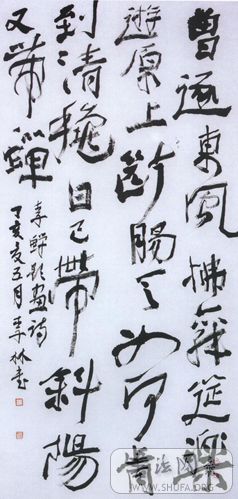 曾逐東風拂舞筵樂
遊原上斷腸天如何肯
到清龝日已帶斜陽
又帶蟬
李鱓題畫詩
丁亥夏五月李林書
WWW.SHUFA.ORG